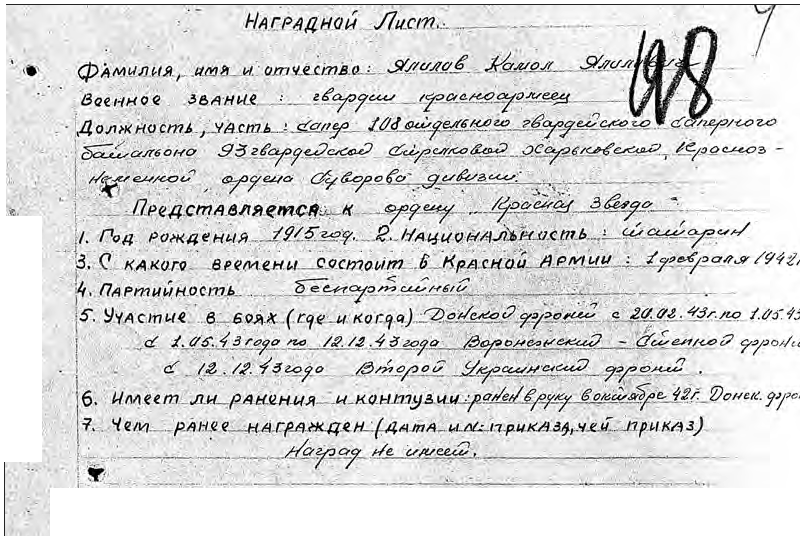 Наградной Лист.
198
Фамилия, имя и отчество: Ялилов Камол
Военное звание: гвардии красноармеец
Должность, часть: сапер 108 отдельного гвардейского саперного
батальона 93 гвардейской стрелковой Харьковской, Красноз-
наменной ордена Суворова дивизии.
Представляется к ордену Красная Звезда
1. Год рождения 1915 год. 2. Национальность: татарин
3. С какого времени состоит в Красной Армии: 1 февраля 1942г
4. Партийность беспартийный
5. Участие в боях (где и когда) Донской фронт с 20.02.43г. по 1.05.43
с 1.05.43 года по 12.12.43 года Воронежский - Степной фронт
с 12.12.43 года Второй Украинский фронт.
6. Имеет ли ранения и контузии: ранен в руку в октябре 42г. Донск. фро
7. Чем ранее награжден (дата и №: приказа, чей приказ)
Наград не имеет.